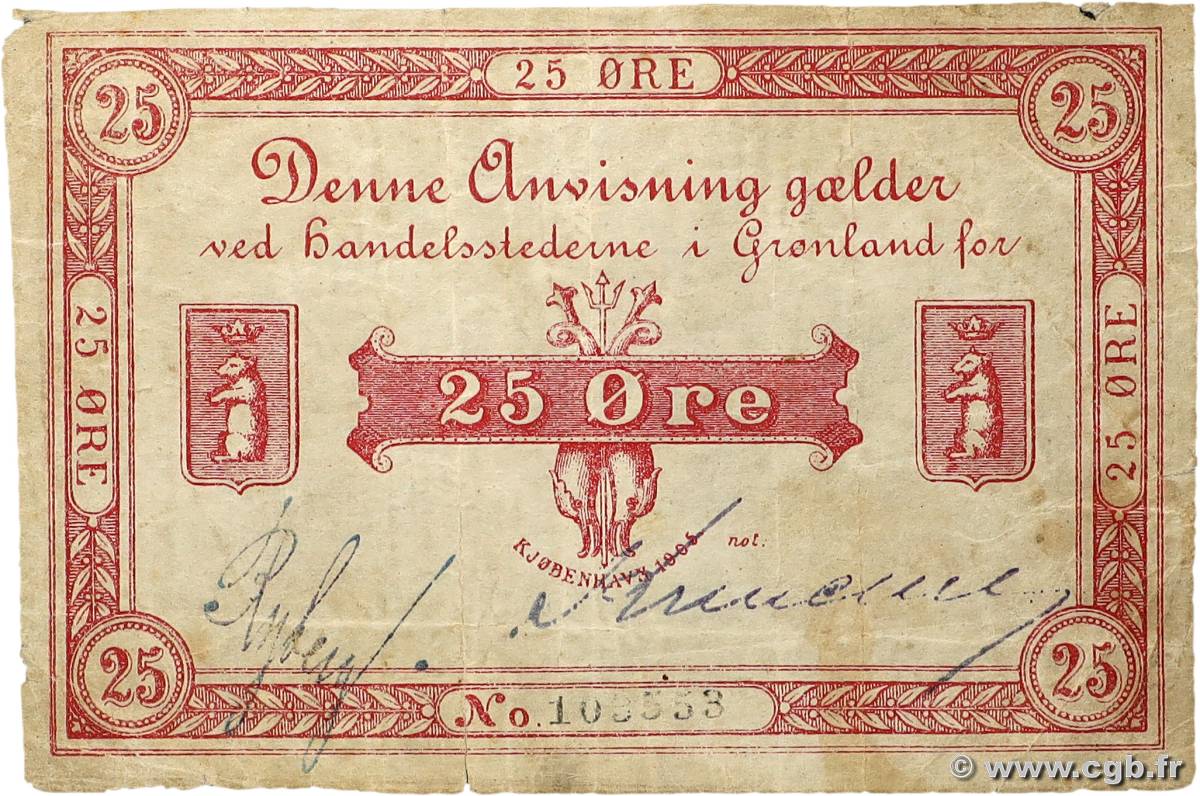 25 ØRE
25
25
Denne Anvisning gælder
ved Handelsstederne i Grønland for
25 ØRE
25 Øre
25 ØRE
KJØBENHAVN 1905
not.
Ryberg
25
25
No.
© www.cgb.fr